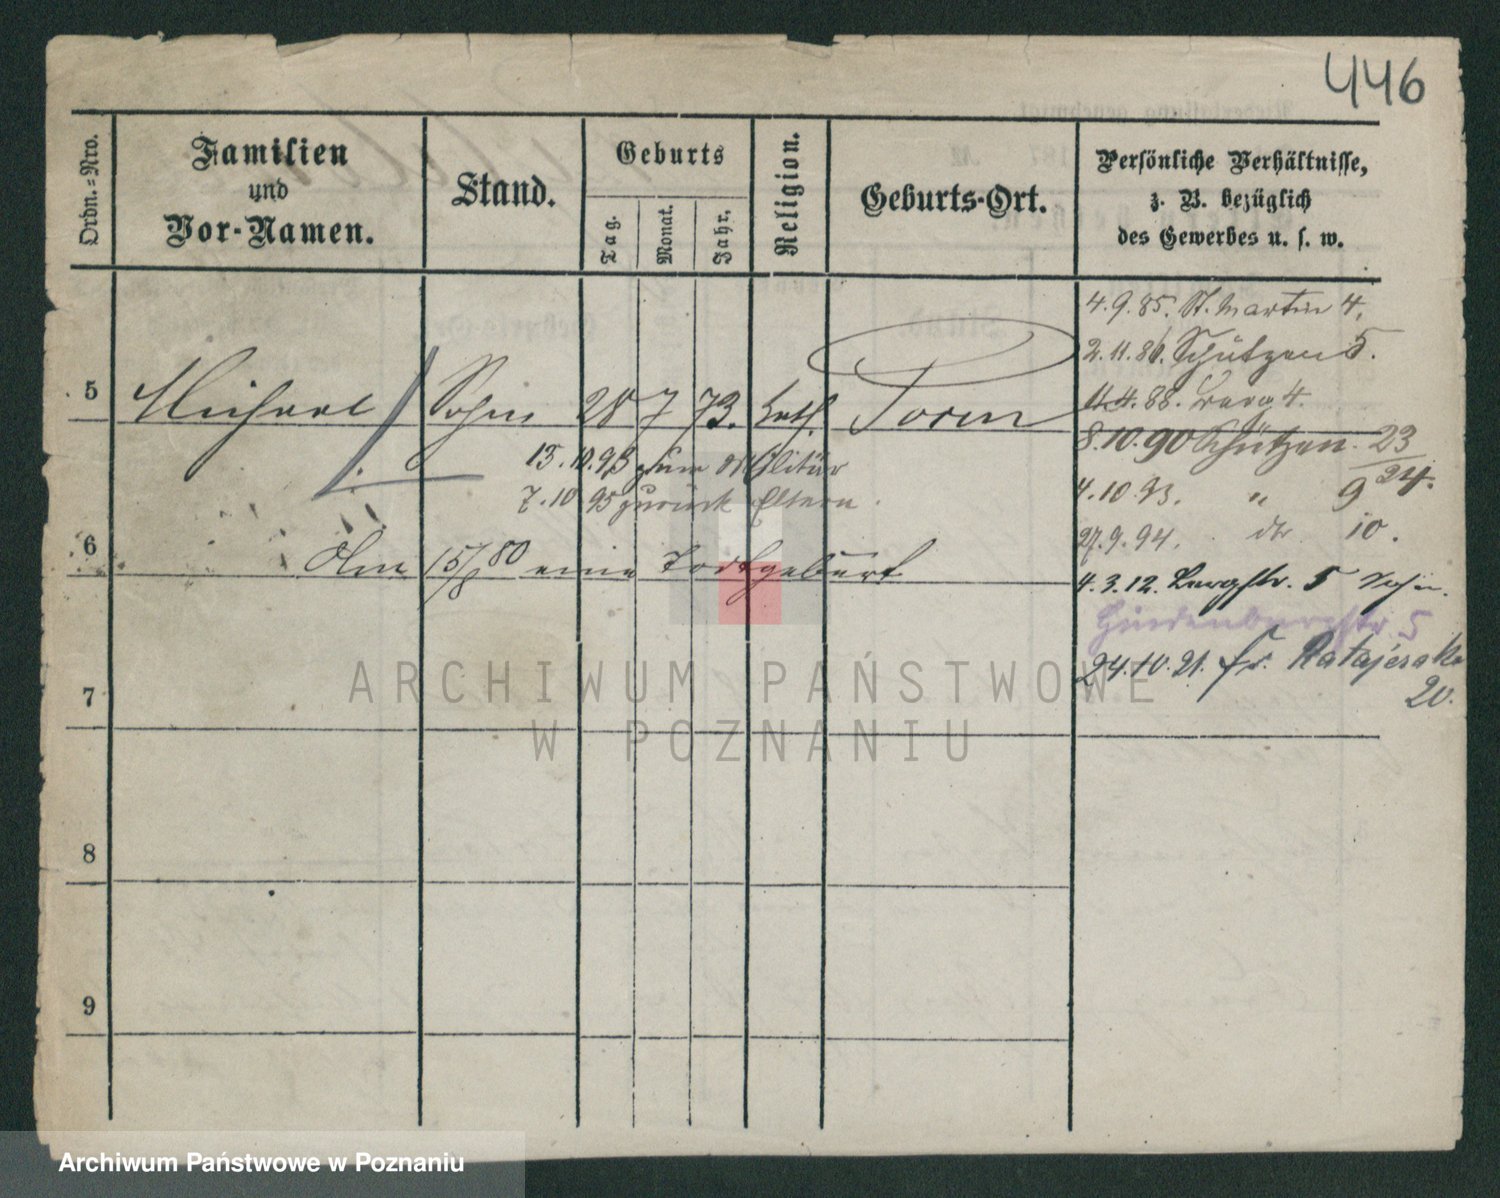 446
Ordn.=Nro.
Familien
und
Vor-Namen.
Stand.
Geburts
Tag.
Monat.
Jahr.
Religion.
Geburts-Ort.
Persönliche Verhältnisse,
z. B. bezüglich
des Gewerbes u. s. w.
4.9.85. St. Martin 4.
2.11.86. Schützen 5.
5 Michael Sohn 28 7 73. kath. Posen
11.4.88. Berg 4.
8.10.90 Schützen 23
24.
13.10.93 zum Militär
7.10.95 zurück Eltern.
4.10.93. " 9
27.9.94. do 10.
6 Am 15/8 80 eine Todtgeburt
4.3.12. Bergstr. 5
Hindenburgstr 5
24.10.21. Fr. Ratajczaka
20.
7
8
9
ARCHIWUM PAŃSTWOWE
W POZNANIU
Archiwum Państwowe w Poznaniu